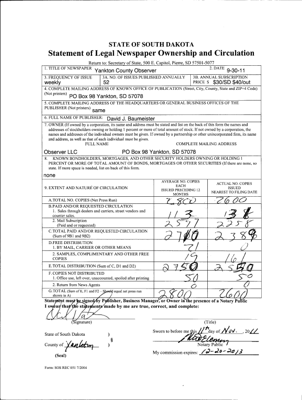 STATE OF SOUTH DAKOTA
Statement of Legal Newspaper Ownership and Circulation
Return to: Secretary of State, 500 E. Capitol, Pierre, SD 57501-5077
1. TITLE OF NEWSPAPER Yankton County Observer 2. DATE 9-30-11
3. FREQUENCY OF ISSUE weekly 3A. NO. OF ISSUES PUBLISHED ANNUALLY 52 3B. ANNUAL SUBSCRIPTION PRICE $ $30/SD $40/out
4. COMPLETE MAILING ADDRESS OF KNOWN OFFICE OF PUBLICATION (Street, City, County, State and ZIP+4 Code)
(Not printers) PO Box 98 Yankton, SD 57078
5. COMPLETE MAILING ADDRESS OF THE HEADQUARTERS OR GENERAL BUSINESS OFFICES OF THE
PUBLISHER (Not printers) same
6. FULL NAME OF PUBLISHER: David J. Baumeister
7. OWNER (If owned by a corporation, its name and address must be stated and list on the back of this form the names and
addresses of stockholders owning or holding 1 percent or more of total amount of stock. If not owned by a corporation, the
names and addresses of the individual owners must be given. If owned by a partnership or other unincorporated firm, its name
and address, as well as that of each individual must be given)
FULL NAME COMPLETE MAILING ADDRESS
Observer LLC PO Box 98 Yankton, SD 57078
8. KNOWN BONDHOLDERS, MORTGAGEES, AND OTHER SECURITY HOLDERS OWNING OR HOLDING 1
PERCENT OR MORE OF TOTAL AMOUNT OF BONDS, MORTGAGES OR OTHER SECURITIES (If there are none, so
state. If more space is needed, list on back of this form.
none
9. EXTENT AND NATURE OF CIRCULATION
AVERAGE NO. COPIES EACH ISSUED PRECEDING 12 MONTHS
ACTUAL NO. COPIES ISSUED NEAREST TO FILING DATE
A. TOTAL NO. COPIES (Net Press Run) 2800 2600
B. PAID AND/OR REQUESTED CIRCULATION
1. Sales through dealers and carriers, street vendors and
counter sales. 113
2. Mail Subscription
(Paid and/or requested) 2597
C. TOTAL PAID AND/OR REQUESTED CIRCULATION
(Sum of 9B1 and 9B2) 2710
D. FREE DISTRIBUTION
1. BY MAIL, CARRIER OR OTHER MEANS
2. SAMPLES, COMPLIMENTARY AND OTHER FREE
COPIES
E. TOTAL DISTRIBUTION (Sum of C, D1 and D2) 2750 2550
F. COPIES NOT DISTRIBUTED
1. Office use, left over, unaccounted, spoiled after printing 50 50
2. Return from News Agents 0 0
G. TOTAL (Sum of E, F1 and F2 - Should equal net press run
shown in A) 2800 2600
Statement must be signed by Publisher, Business Manager, or Owner in the presence of a Notary Public
I swear that the statements made by me are true, correct, and complete:
(Signature) (Title)
State of South Dakota )
County of Yankton )
(Seal)
Sworn to before me this 11th Day of Nov. 2011
Notary Public
My commission expires: 12-20-2013